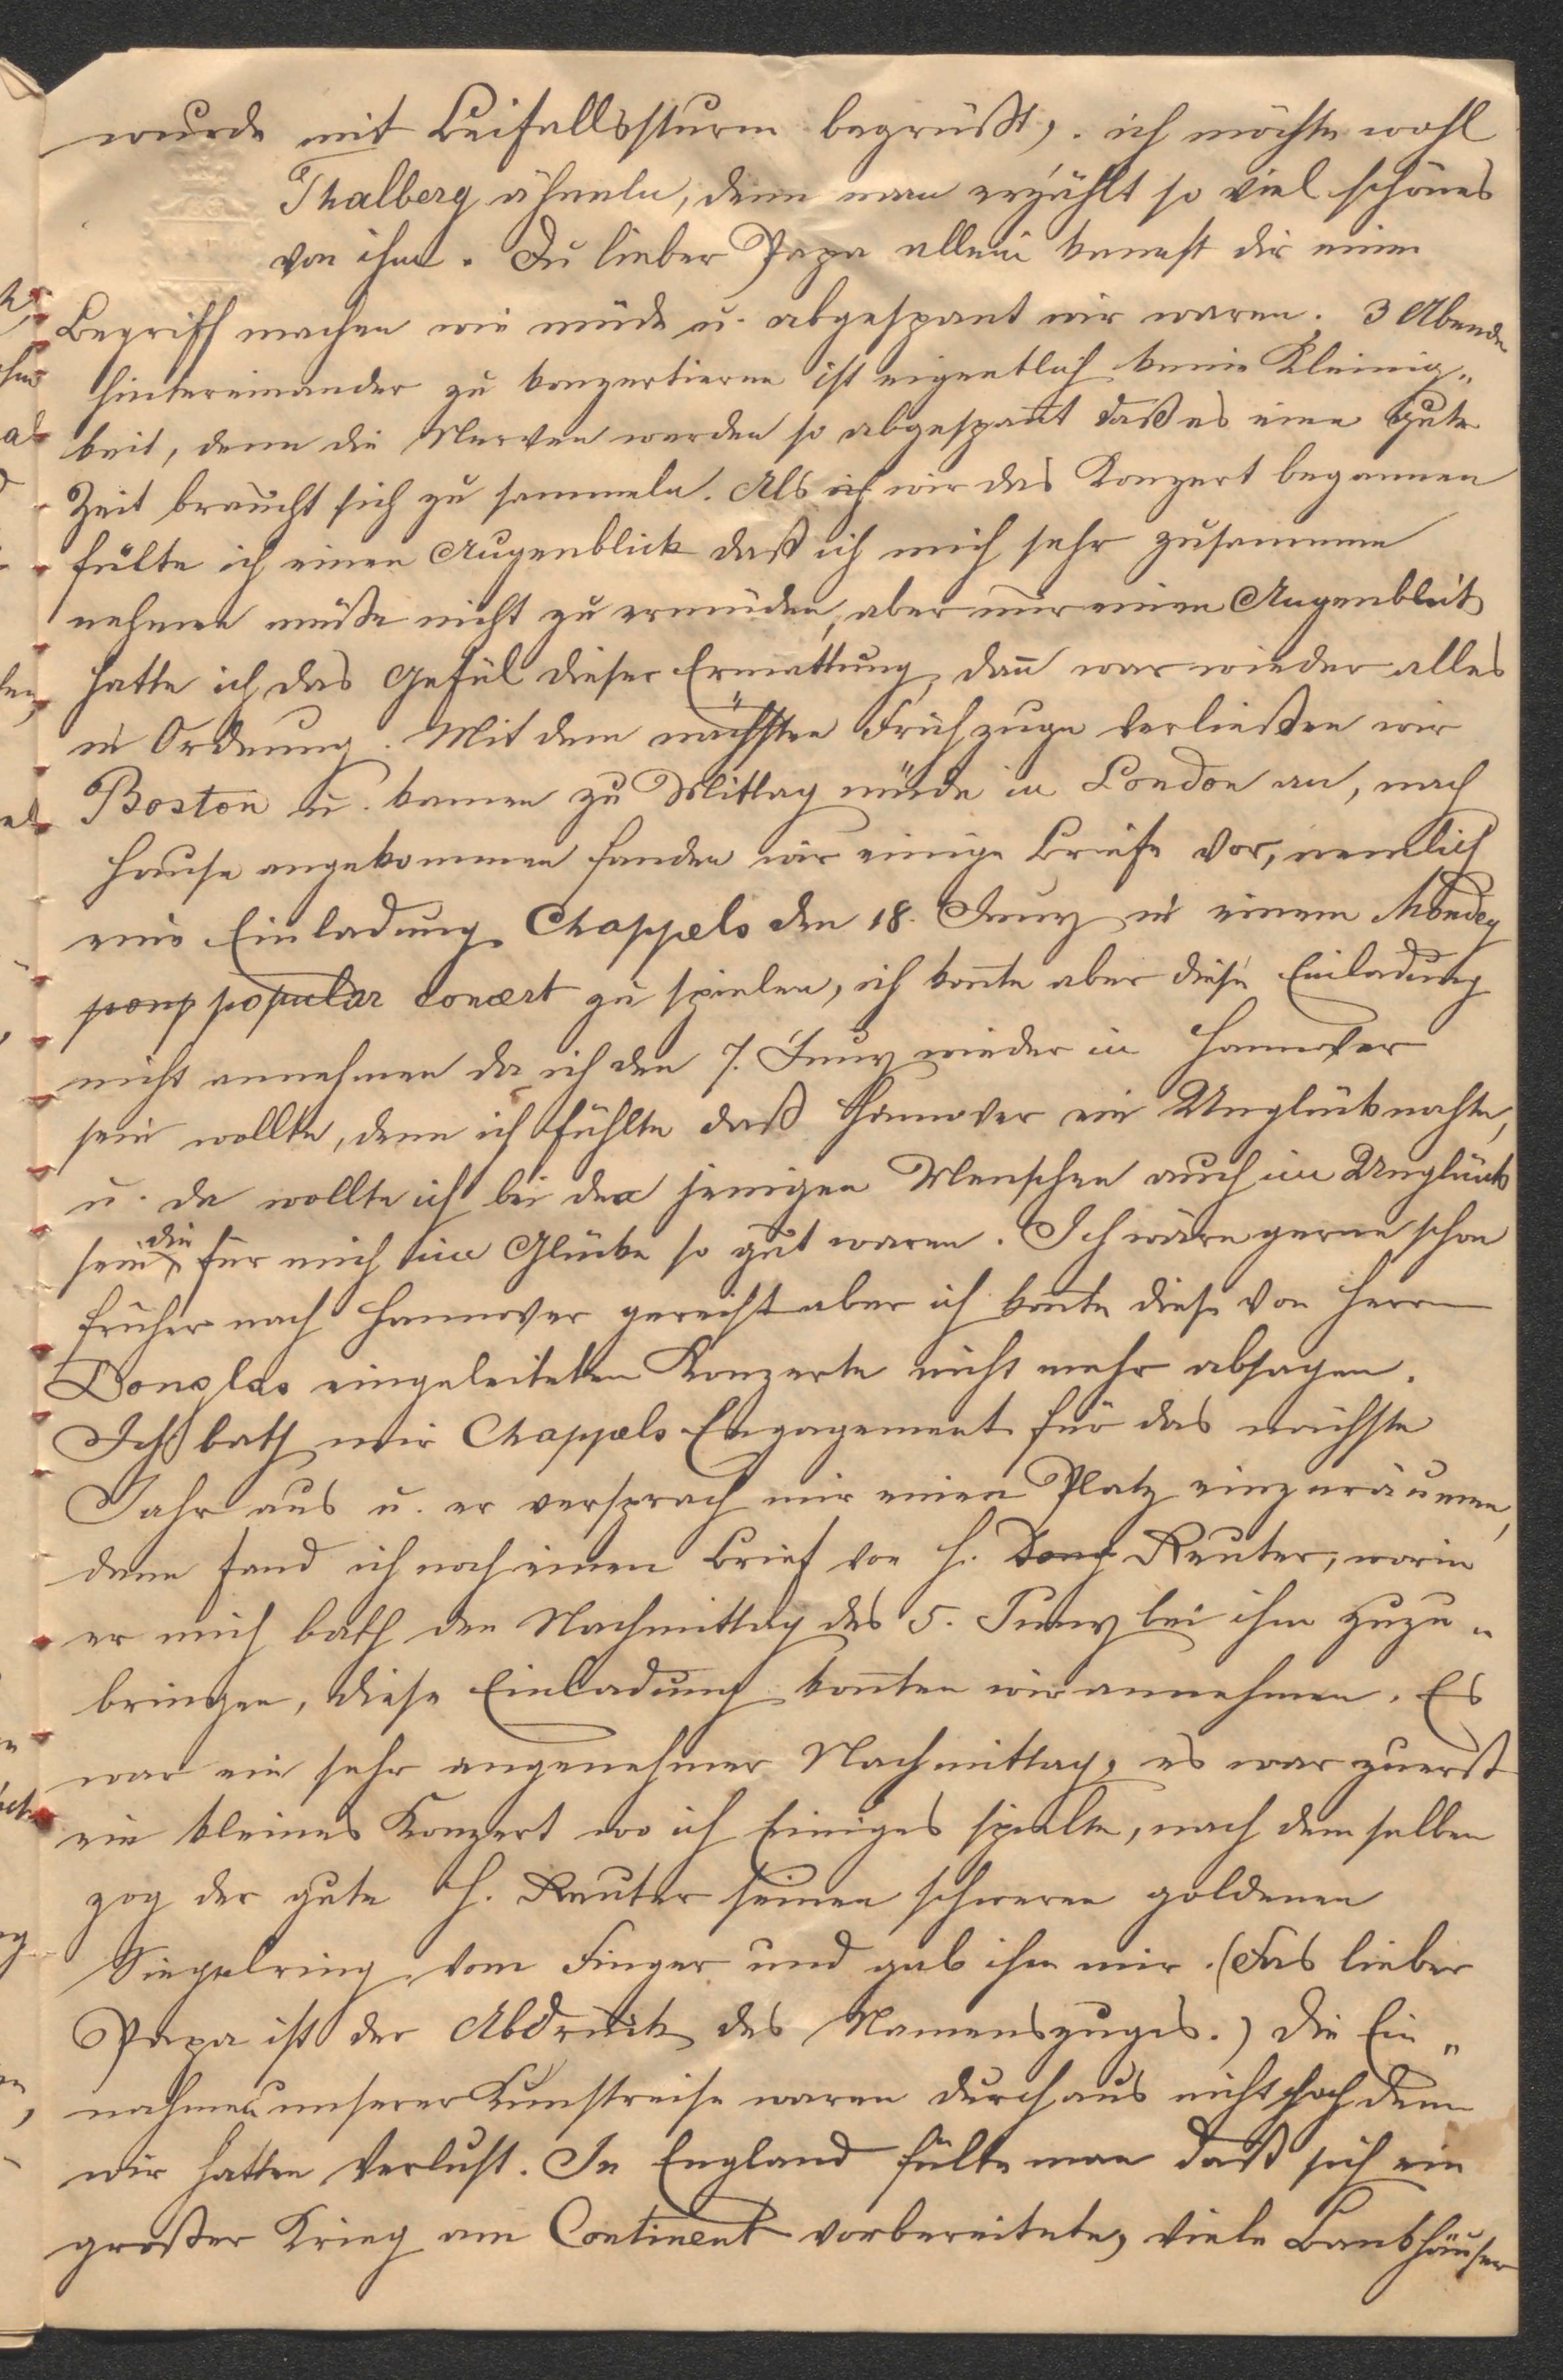 wurde mit Beifallssturm begrüßt, ich möchte wohl
Thalberg ähneln, denn man erzählt so viel schönes
von ihm. Du lieber Papa allein kannst dir einen
Begriff machen wie müde u. abgespant wir waren. 3 Abende
hintereinander zu konzertieren ist eigentlich keine Kleinig„
keit, denn die Nerven werden so abgespant daß es eine gute
Zeit braucht sich zu sammeln. Als ich wir das Konzert begannen
fülte ich einen Augenblick daß ich mich sehr zusammen
nehmen müße nicht zu ermüden, aber nur einen Augenblick
hatte ich das Gefül dieser Ermattung, dan̄ war wieder alles
in Ordnung. Mit dem nächsten Frühzuge verließen wir
Boston u. kamen zu Mittag müde in London an, nach
Hause angekommen fanden wir einige Briefe vor, nemlich
eine Einladung Chappels den 18. Juny in einem Mondey
poup popular concert zu spielen, ich kon̄te aber diese Einladung
nicht annehmen da ich den 7. Juny wieder in Hannover
sein wollte, denn ich fühlte daß Hannover ein Unglück nahte,
u. da wollte ich bei den jenigen Menschen auch im Unglück
sein die für mich im Glücke so gut waren. Ich wäre gerne schon
früher nach Hannover gereist aber ich kon̄te diese von Herrn
Douglas eingeleiteten Konzerte nicht mehr absagen.
Ich bath mir Chappels Engagement für das nächste
Jahr aus u. er versprach mir einen Platz einzuräumen,
dann fand ich noch einen Brief von H. Doug Reuter, worin
er mich bath den Nachmittag des 5. Juny bei ihm zuzu„
bringen, diese Einladung kon̄ten wir annehmen. Es
war ein sehr angenehmer Nachmittag, es war zuerst
ein kleines Konzert wo ich Einiges spielte, nach demselben
zog der gute H. Reuter seinen schweren goldenen
Siegelring vom Finger und gab ihn mir. (Das lieber
Papa ist der Abdruck des Namenszuges.) Die Ein„
nahmen unserer Kunstreise waren durchaus nicht hoch denn
wir hatten Verlust. In England fülte man daß sich ein
großer Krieg am Continent vorbereitete, viele Bankhäuser